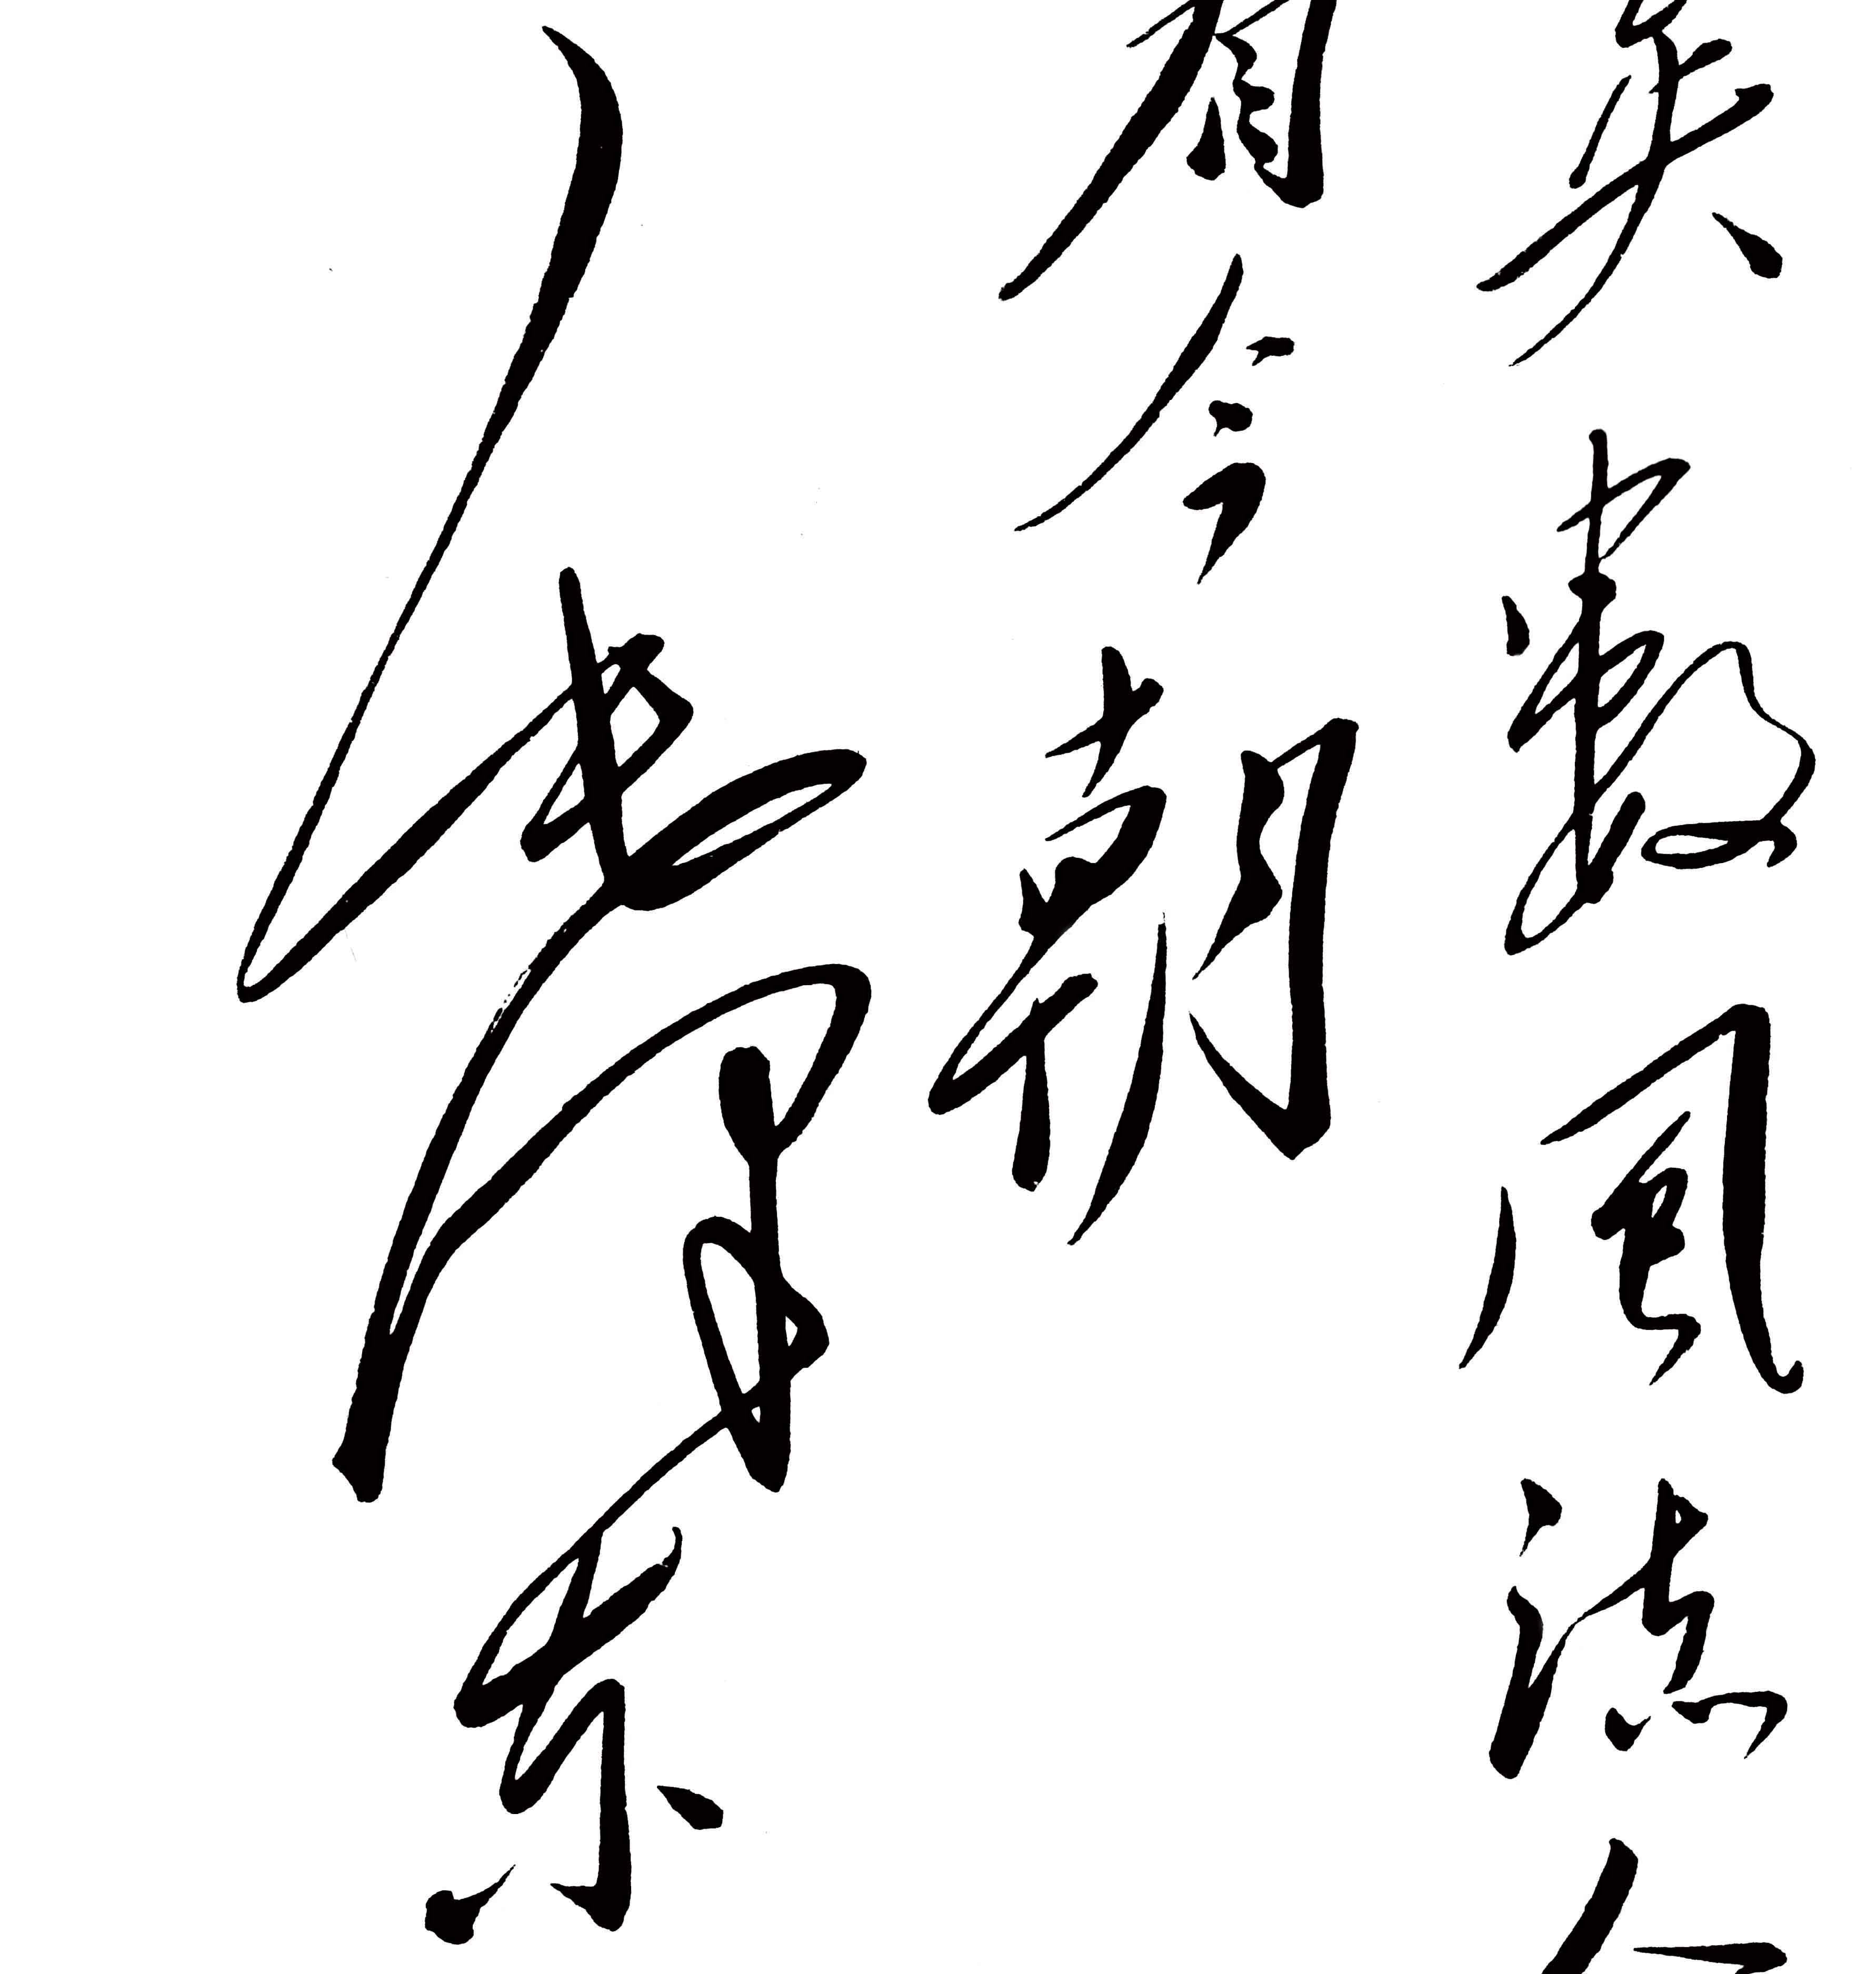 矣數風流
看今朝
毛泽东